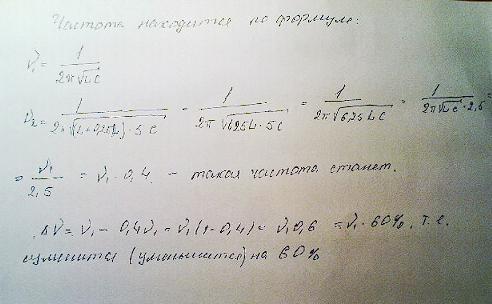 Частота находится по формуле:
ν₁ = 1 / 2π√LC
ν₂ = 1 / 2π√(L+0,25L)·5C = 1 / 2π√1,25L·5C = 1 / 2π√6,25LC = 1 / 2π√LC·2,5 =
= ν₁ / 2,5 = ν₁·0,4 – такая частота станет.
Δν = ν₁ – 0,4ν₁ = ν₁(1-0,4) = ν₁0,6 = ν₁·60%, т.е.
(уменьшится) на 60%